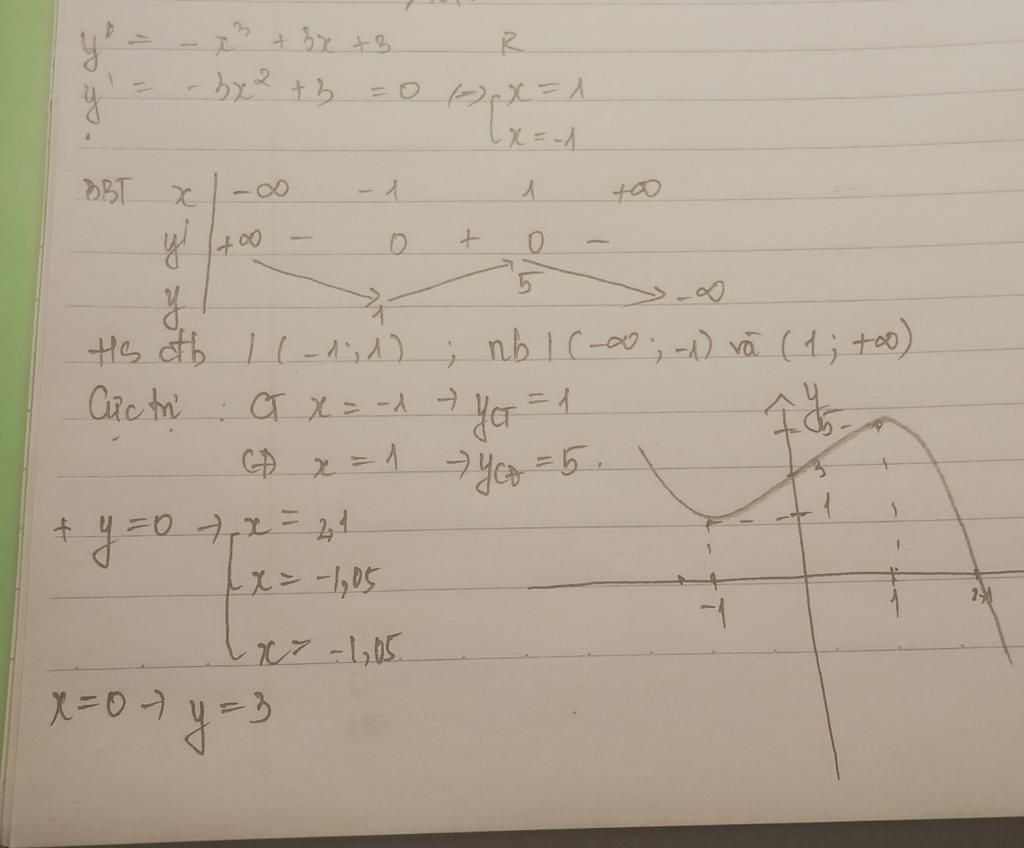 y = -x³ + 3x + 3 R
y' = -3x² + 3 = 0 (=) x = 1
x = -1
BBT x -∞ -1 1 +∞
y' +∞ - 0 + 0 -
y 1 5 -∞
HS đb / (-1; 1) ; nb / (-∞; -1) và (1; +∞)
Cực trị : CT x = -1 → yCT = 1
CĐ x = 1 → yCĐ = 5.
+ y = 0 → x = 2,1
x = -1,05
x = -1,05
x = 0 → y = 3
y
5
3
1
-1 1 2,1